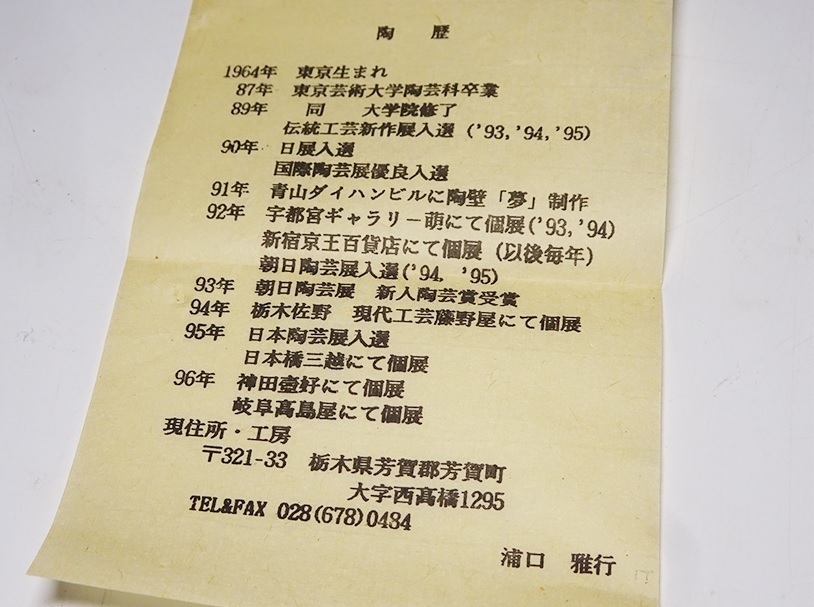 陶 歴
1964年 東京生まれ
87年 東京芸術大学陶芸科卒業
89年 同 大学院修了
伝統工芸新作展入選 ('93,'94,'95)
90年 日展入選
国際陶芸展優良入選
91年 青山ダイハンビルに陶壁「夢」制作
92年 宇都宮ギャラリー萌にて個展('93,'94)
新宿京王百貨店にて個展 (以後毎年)
朝日陶芸展入選('94, '95)
93年 朝日陶芸展 新人陶芸賞受賞
94年 栃木佐野 現代工芸藤野屋にて個展
95年 日本陶芸展入選
日本橋三越にて個展
96年 神田壺好にて個展
岐阜髙島屋にて個展
現住所・工房
〒321-33 栃木県芳賀郡芳賀町
大字西髙橋1295
TEL&FAX 028(678)0434
浦口 雅行